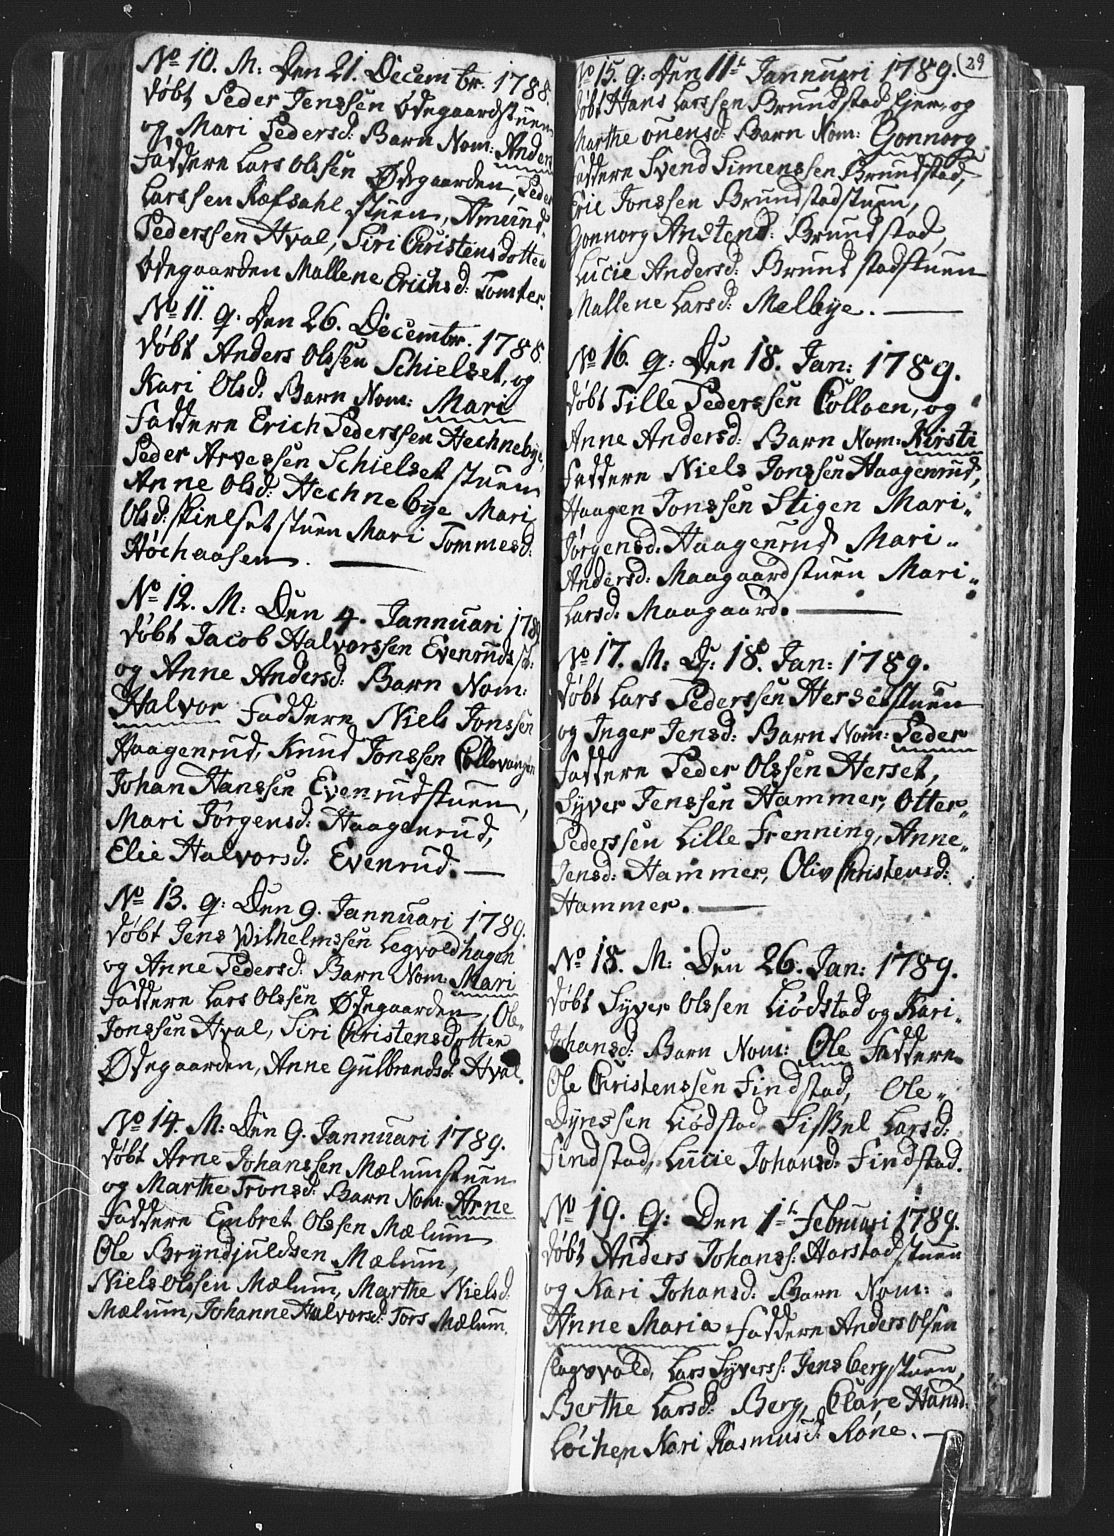 No 10. M: Den 21. Decembr. 1788.
døbt Peder Jenssen Ødegaardstuen
og Mari Pedersd: Barn Nom: Anders
Faddere Lars Olssen Ødegaarden, Peder
Larssen Refsahl stuen, Amund
Pederssen Hval, Siri Christensdotter
Ødegaarden Mallene Erichsd: Tomter.
No 11. q: Den 26. Decembr. 1788
døbt Anders Olssen Schielset, og
Kari Olsd: Barn Nom: Mari
Faddere Erich Pederssen Hechnebye,
Peder Arvessen Schielset stuen
Anne Olsd: Hechnebye Mari
Olsd: skielset stuen Mari Tommesd:
Høchaasen.
No 12. M: Den 4. Jannuari 1789
døbt Jacob Halvorssen Evenruds st:
og Anne Andersd: Barn Nom:
Halvor Faddere Niels Jonssen
Haagenrud, Knud Jonssen Collovangen
Johan Hanssen Evenrudstuen,
Mari Jørgensd: Haagenrud,
Elie Halvorsd: Evenrud.
No 13. q: Den 9. Jannuari 1789.
døbt Jens Vilhelmssen Legvoldhagen
og Anne Pedersd: Barn Nom: Mari
Faddere Lars Olssen Ødegaarden, Ole
Jonssen Hval, Siri Christensdotter
Ødegaarden, Anne Gulbrandsd: Hval.
No 14. M: Den 9. Jannuari 1789.
døbt Arne Johanssen Mælumstuen
og Marthe Tronsd: Barn Nom: Arne
Faddere Embret Olssen Mælum
Ole Bryndjuldsen Mælum,
Niels Olssen Mælum, Marthe Nielsd:
Mælum, Johanne Halvorsd: Tors Mælum.
29
No 15. q: Den 11t Jannuari 1789.
døbt Hans Larssen Brundstad Eier, og
Marthe Ouensd: Barn Nom: Gonnorg
Faddere Svend Simenssen Brundstad,
Eric Jonssen Brundstadstuen,
Gonnorg Anstensd: Brundstad,
Lucie Andersd: Brundstadstuen
Mallene Larsd: Melbye.
No 16. q: Den 18. Jan: 1789.
døbt Tille Pederssen Colloen, og
Anne Andersd: Barn Nom: Kirsti
Faddere Niels Jonssen Haagenrud,
Haagen Jonssen Stigen Mari
Jørgensd: Haagenrud Mari
Andersd: Maagaardstuen Mari
Larsd: Maagaard.
No 17. M: D: 18. Jan: 1789.
døbt Lars Pederssen Hersetstuen
og Inger Jensd: Barn Nom: Peder
Faddere Peder Olssen Herset,
Syver Jenssen Hammer, Otter
Pederssen Lille Frenning, Anne
Jensd: Hammer, Oliv Christensd:
Hammer.
No 18. M: Den 26. Jan: 1789.
døbt Syver Olssen Liødstad og Kari
Johansd: Barn Nom: Ole Faddere
Ole Christenssen Findstad, Ole
Dynssen Liødstad Sissel Larsd:
Findstad, Lucie Johansd: Findstad.
No 19. q: Den 1t Februari 1789.
døbt Anders Johanss: Harstadstuen
og Kari Johansd: Barn Nom:
Anne Maria Faddere Anders Olsen
slagsvold, Lars Syverss: Jensbergstuen,
Berthe Larsd: Berg, Clare Hansd:
Løchen Kari Rasmusd: Røne.